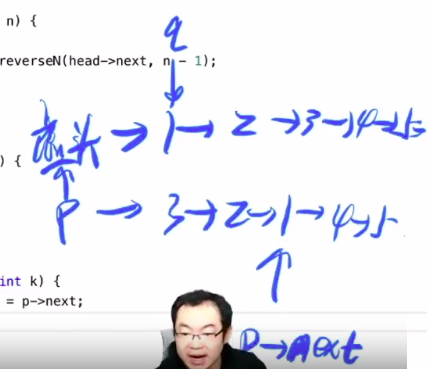 n) {
q
reverseN(head->next, n - 1);
头 → 1 → 2 → 3 → 4 → 5
) {
p → 3 → 2 → 1 → 4 → 5
int k) {
= p->next;
p → next